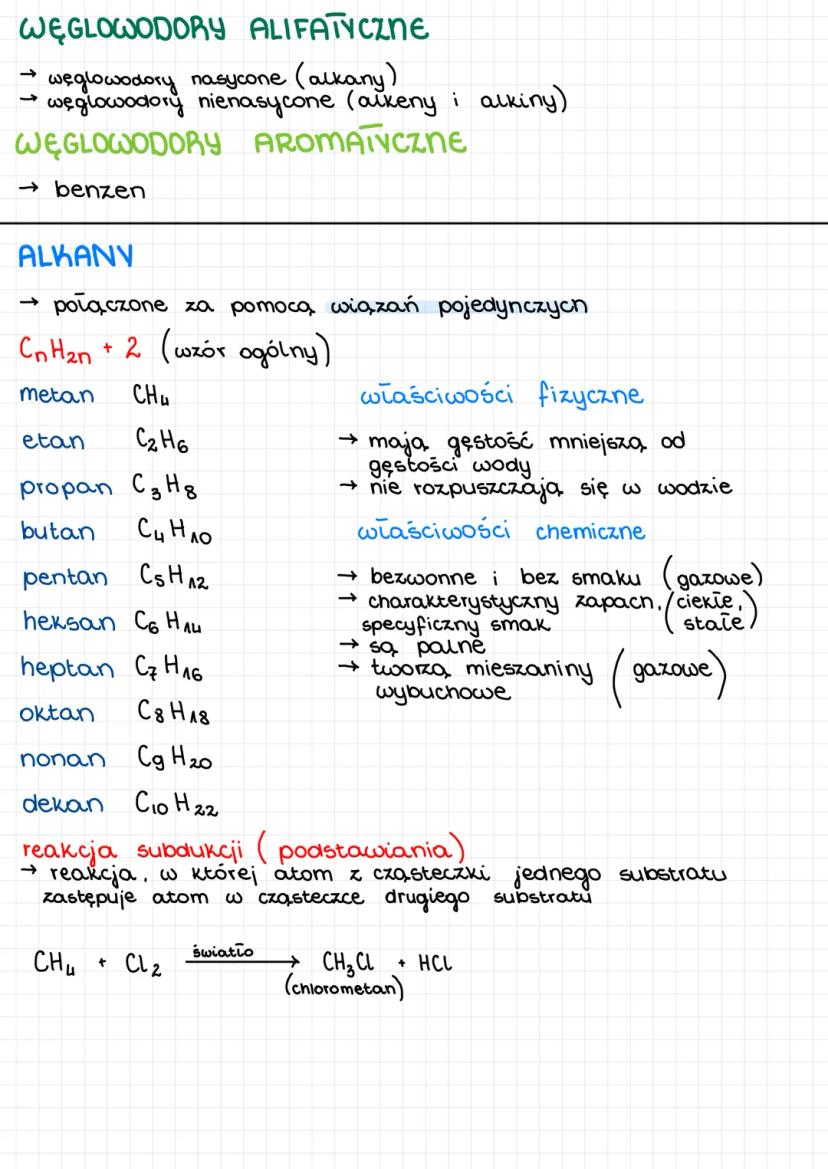 WĘGLOWODORY ALIFATYCZNE
→ węglowodory nasycone (alkany)
→ węglowodory nienasycone (alkeny i alkiny)
WĘGLOWODORY AROMATYCZNE
→ benzen
ALKANY
→ połączone za pomocą wiązań pojedynczych
CnH2n + 2 (wzór ogólny)
metan CH4
etan C2H6
propan C3H8
butan C4H10
pentan C5H12
heksan C6H14
heptan C7H16
oktan C8H18
nonan C9H20
dekan C10H22
właściwości fizyczne
→ mają gęstość mniejszą od
gęstości wody
→ nie rozpuszczają się w wodzie
właściwości chemiczne
→ bezwonne i bez smaku (gazowe)
→ charakterystyczny zapach, (ciekłe,
specyficzny smak stałe)
→ są palne
→ tworzą mieszaniny (gazowe)
wybuchowe
reakcja subdukcji (podstawiania)
→ reakcja, w której atom z cząsteczki jednego substratu
zastępuje atom w cząsteczce drugiego substratu
światło
CH4 + Cl2 → CH3Cl + HCl
(chlorometan)